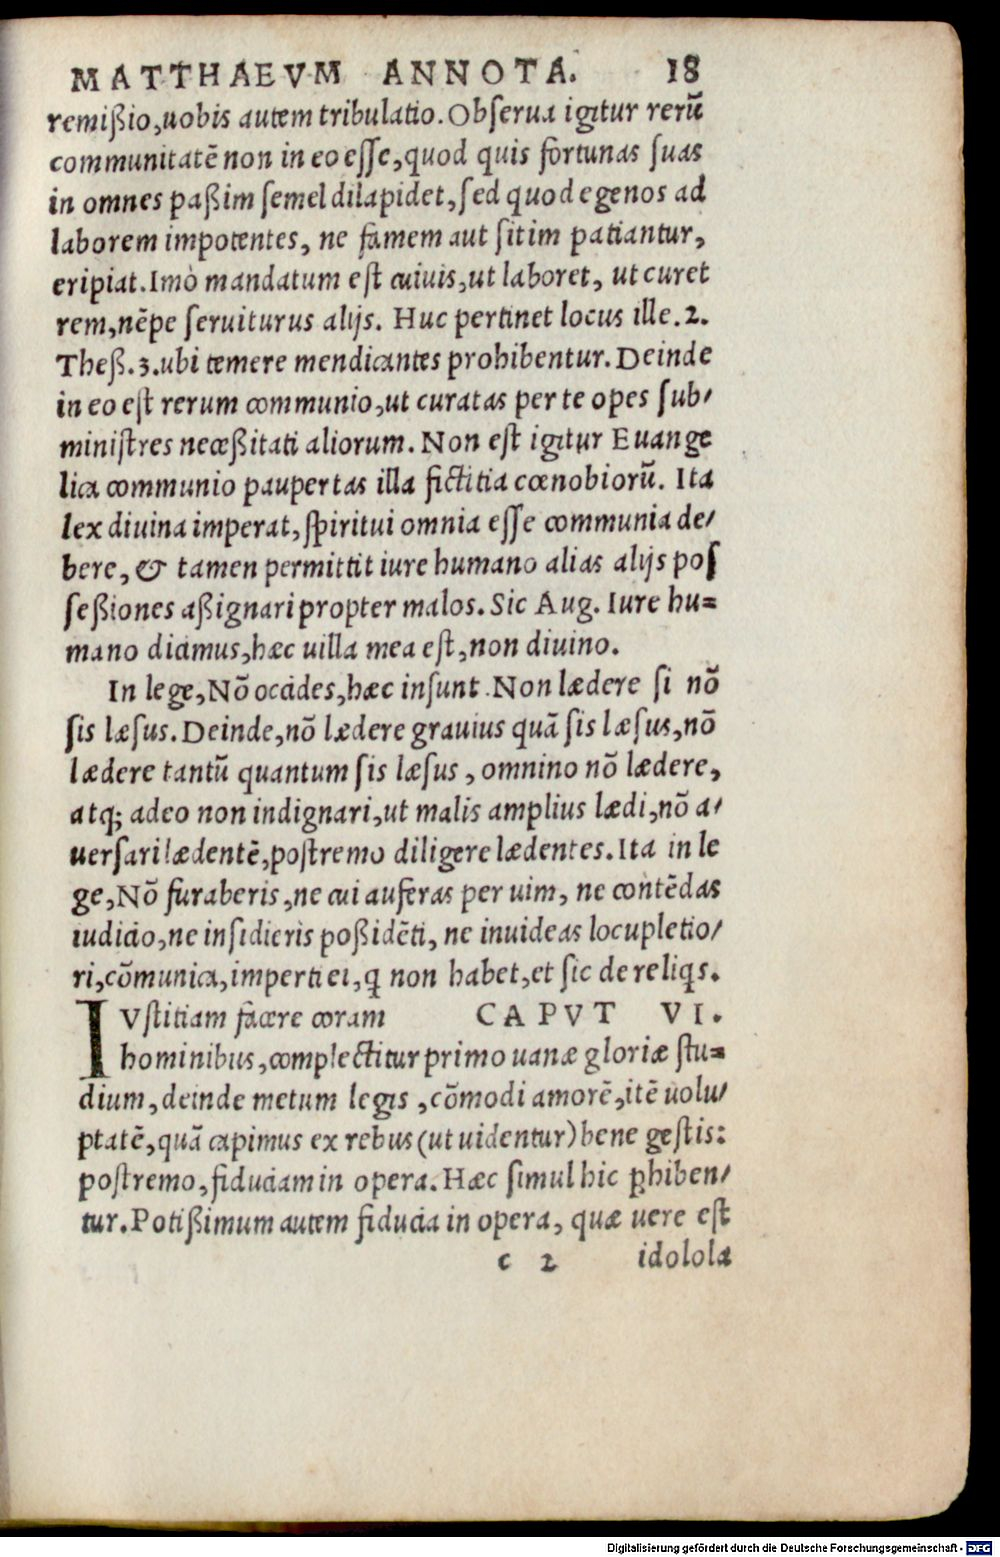 MATTHAEVM ANNOTA. 18
remißio,uobis autem tribulatio. Obſerua igitur rerū
communitatē non in eo eſſe,quod quis fortunas ſuas
in omnes paßim ſemel dilapidet, ſed quod egenos ad
laborem impotentes, ne famem aut ſitim patiantur,
eripiat. Imò mandatum eſt cuiuis,ut laboret, ut curet
rem,nēpe ſeruiturus alijs. Huc pertinet locus ille. 2.
Theß. 3. ubi temere mendicantes prohibentur. Deinde
in eo eſt rerum communio,ut curatas per te opes ſub⸗
miniſtres neceßitati aliorum. Non eſt igitur Euange
lica communio paupertas illa fictitia cœnobiorū. Ita
lex diuina imperat, ſpiritui omnia eſſe communia de⸗
bere, & tamen permittit iure humano alias alijs poſ
ſeßiones aßignari propter malos. Sic Aug. Iure hu⸗
mano dicimus,hæc uilla mea eſt,non diuino.
In lege,Nō occides,hæc inſunt. Non lædere ſi nō
ſis læſus. Deinde,nō lædere grauius quā ſis læſus,nō
lædere tantū quantum ſis læſus, omnino nō lædere,
atq; adeo non indignari,ut malis amplius lædi,nō a⸗
uerſari lædentē,poſtremo diligere lædentes. Ita in le
ge,Nō furaberis,ne cui auferas per uim, ne contēdas
iudicio,ne inſidieris poßidēti, ne inuideas locupletio⸗
ri,cōmunica,imperti ei,q non habet,et ſic de reliqs.
IVſtitiam facere coram CAPVT VI.
hominibus,complectitur primo uanæ gloriæ ſtu⸗
dium,deinde metum legis,cōmodi amorē,itē uolu⸗
ptatē,quā capimus ex rebus (ut uidentur) bene geſtis:
poſtremo,fiduciam in opera. Hæc ſimul hic ꝓhiben⸗
tur. Potißimum autem fiducia in opera, quæ uere eſt
c 2 idolola
Digitalisierung gefördert durch die Deutsche Forschungsgemeinschaft - DFG